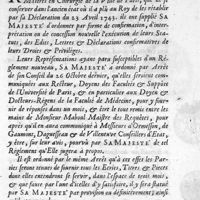 Maîtres en Chirurgie de la Ville de Paris, qui se
conserver dans l'ancien état où il a plû au Roy de les rétablir
par sa Déclaration du 23 Avril 1743. ils ont supplié SA
MAJESTÉ d'ordonner par forme de confirmation, d'inter-
prétation ou de concession nouvelle l'exécution de leurs Sta-
tuts, des Edits, Lettres & Déclarations confirmatives de
leurs Droits & Privileges.
Leurs Représentations ayant paru susceptibles d'un Ré-
glement nouveau, SA MAJESTÉ a ordonné par Arrêt
de son Conseil du 26 Octobre dernier, qu'elles seroient com-
muniquées aux Recteur, Doyens des Facultés & Suppôts
de l'Université de Paris, & en particulier aux Doyen &
Docteurs-Régens de la Faculté de Médecine, pour y four-
nir de réponses dans un mois, & le tout être remis entre les
mains de Monsieur Maboul Maître des Requêtes, pour
après qu'il en aura communiqué à Messieurs d'Ormesson, de
Gaumont, Daguesseau & de Villeneuve Conseillers d'Etat,
y être, sur leur avis, pourvû par SA MAJESTÉ de tel
Réglement qu'Elle jugera à propos.
Il est ordonné par le même Arrêt qu'à cet effet les Par-
ties seront tenues de fournir tous les Ecrits, Titres & Piéces
dont elles entendront se servir, dans l'espace de trois mois,
& que faute par l'une d'icelles d'y satisfaire, il y sera statué
par SA MAJESTÉ par provision ou définitivement ainsi